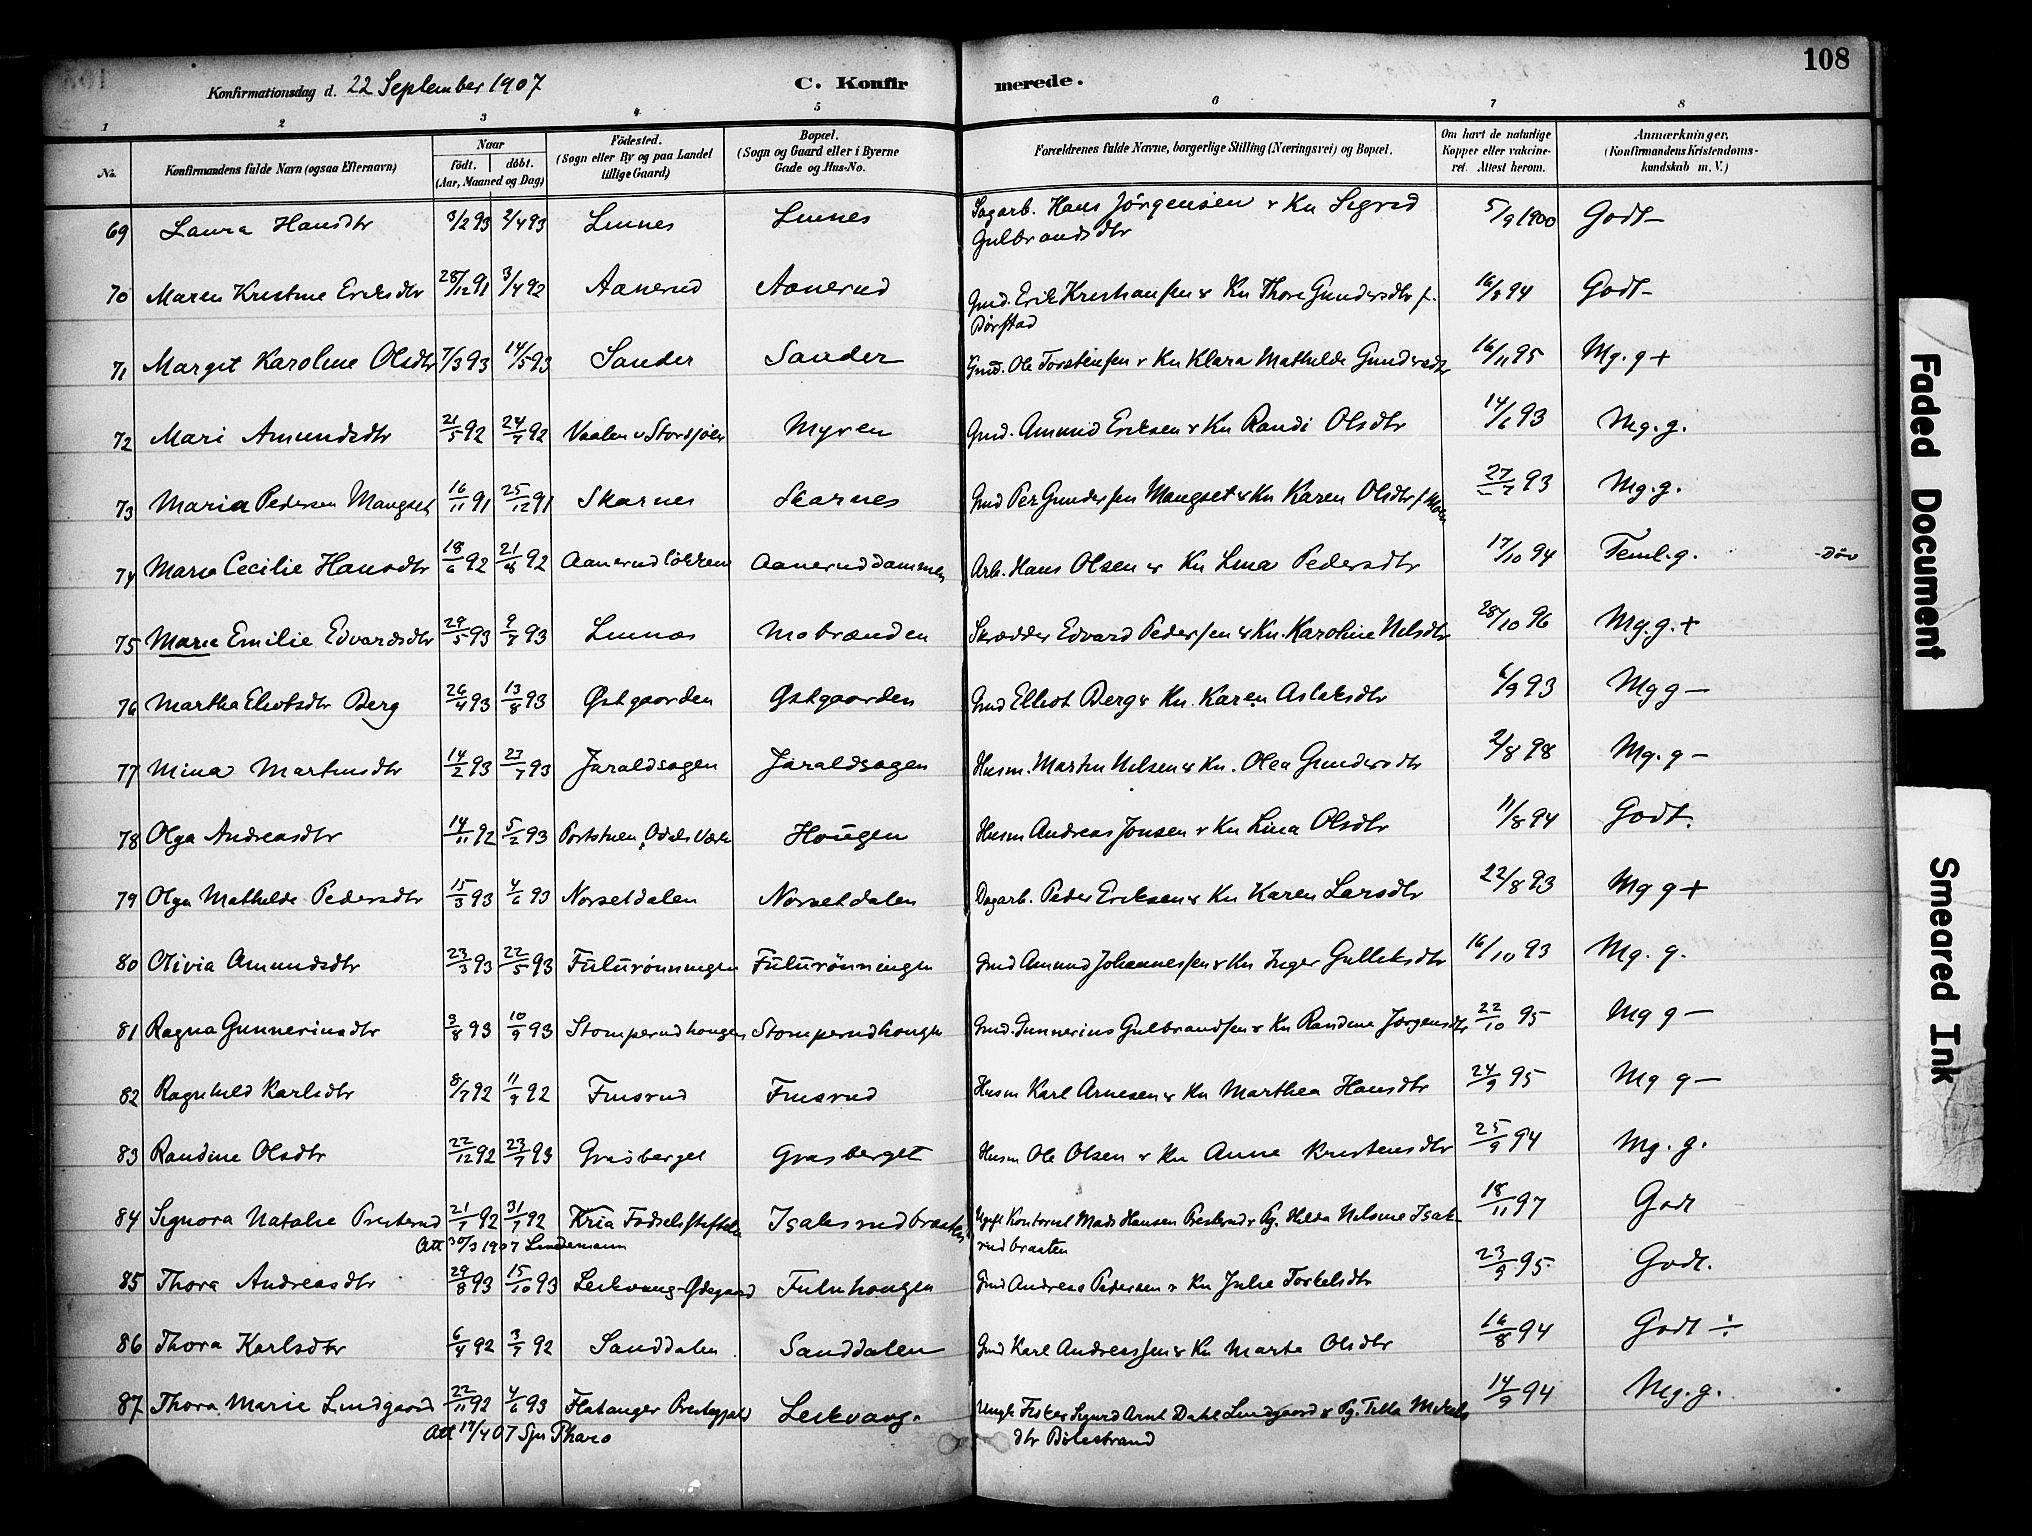 108
Konfirmationsdag d. 22 September 1907 C. Konfirmerede.
1 2 3 4 5 6 7 8
No. Konfirmandens fulde Navn (ogsaa Efternavn) Naar født. døbt. (Aar, Maaned og Dag) Fødested. (Sogn eller By og paa Landet tillige Gaard) Bopæl. (Sogn og Gaard eller i Byerne Gade og Hus-No. Forældrenes fulde Navne, borgerlige Stilling (Næringsvei) og Bopæl. Om havt de naturlige Kopper eller vakcineret. Attest herom. Anmærkninger. (Konfirmandens Kristendomskundskab m. V.)
69 Laura Hansdtr 3/2 93 2/4 93 Linnes Linnes Sagarb. Hans Jörgensen & Kn Sigrid Gulbrandsdtr 5/9 1900 Godt -
70 Maren Kristine Eriksdtr 28/12 91 3/4 92 Aanerud Aanerud Gmd. Erik Kristiansen & Kn Thore Gundersdtr f. Dörstad 16/8 94 Godt -
71 Margit Karoline Olsdtr 7/3 93 14/5 93 Sander Sander Gmd. Ole Torstensen & Kn Klara Mathilde Gundersdtr 16/11 95 Mg. g +
72 Mari Amundsdtr 21/5 92 24/7 92 Vaalen v Storsjöen Myren Gmd. Amund Eriksen & Kn Randi Olsdtr 14/6 93 Mg. g.
73 Maria Pedersen Mangset 16/11 91 25/12 91 Skarnes Skarnes Gmd Per Gundersen Mangset & Kn Karen Olsdtr f. Moen 27/7 93 Mg. g.
74 Marie Cecilie Hansdtr 18/6 92 21/8 92 Aanerudlökken Aaneruddammen Arb. Hans Olsen & Kn Lina Pedersdtr 17/10 94 Teml. g. - Döv
75 Marie Emilie Edvardsdtr 29/5 93 9/7 93 Linnes Mobrænden Skrædder Edvard Pedersen & Kn. Karoline Nilsdtr 28/10 96 Mg. g. +
76 Martha Eliotsdtr Berg 26/4 93 13/8 93 Østgaarden Østgaarden Gmd Elliot Berg & Kn. Karen Aslaksdtr 6/9 93 Mg g -
77 Mina Martinsdtr 14/2 93 23/7 93 Jaraldsagen Jaraldsagen Husm. Martin Nilsen & Kn. Olea Gundersdtr 2/8 98 Mg. g -
78 Olga Andreasdtr 14/11 92 5/2 93 Portstuen, Odals Værk Hougen Husm Andreas Jonsen & Kn Lina Olsdtr 11/8 94 Godt.
79 Olga Mathilde Pedersdtr 15/3 93 4/6 93 Norsetdalen Norsetdalen Dagarb. Peder Eriksen & Kn Karen Larsdtr 22/8 93 Mg g +
80 Olivia Amundsdtr 23/3 93 22/5 93 Fulurönningen Fulurönningen Gmd Amund Johannessen & Kn Inger Gulliksdtr 16/10 93 Mg. g.
81 Ragna Gunnerinsdtr 3/8 93 10/9 93 Stomperudhougen Stomperudhougen Gmd. Gunnerius Gulbrandsen & Kn Randine Jørgensdtr 22/10 95 Mg g -
82 Ragnhild Karlsdtr 8/7 92 11/9 92 Finsrud Finsrud Husm Karl Arnesen & Kn Marthea Hansdtr 24/9 95 Mg g -
83 Randine Olsdtr 22/12 92 23/7 93 Grasberget Grasberget Husm Ole Olsen & Kn Anne Kristensdtr 25/9 94 Mg. g.
84 Signora Natalie Presterud 21/1 92 31/1 92 Kria Fødselsstiftelse Isaksrudbraaten Ugift Kontorist Mads Hansen Presterud & Pg. Hilda Nilsine Isaksrudbraaten 18/11 97 Godt
Att 30/3 1907 Lindemann
85 Thora Andreasdtr 29/8 93 15/10 93 Leikvang-Ødegaard Fuluhougen Gmd Andreas Pedersen & Kn Julie Torkelsdtr 23/9 95 Godt.
86 Thora Karlsdtr 6/4 92 3/7 92 Sanddalen Sanddalen Gmd Karl Andreassen & Kn Marte Olsdtr 16/8 94 Godt ÷
87 Thora Marie Lindgaard 22/11 92 4/6 93 Flatanger Prestegjeld Leikvang. Ungk. Fisker Sigurd Arnt Dahl Lindgaard & Pg. Tilla Mikals dtr Bölestrand 14/9 94 Mg. g.
Att 17/4 07 Spr Pharo
Faded Document
Smeared Ink